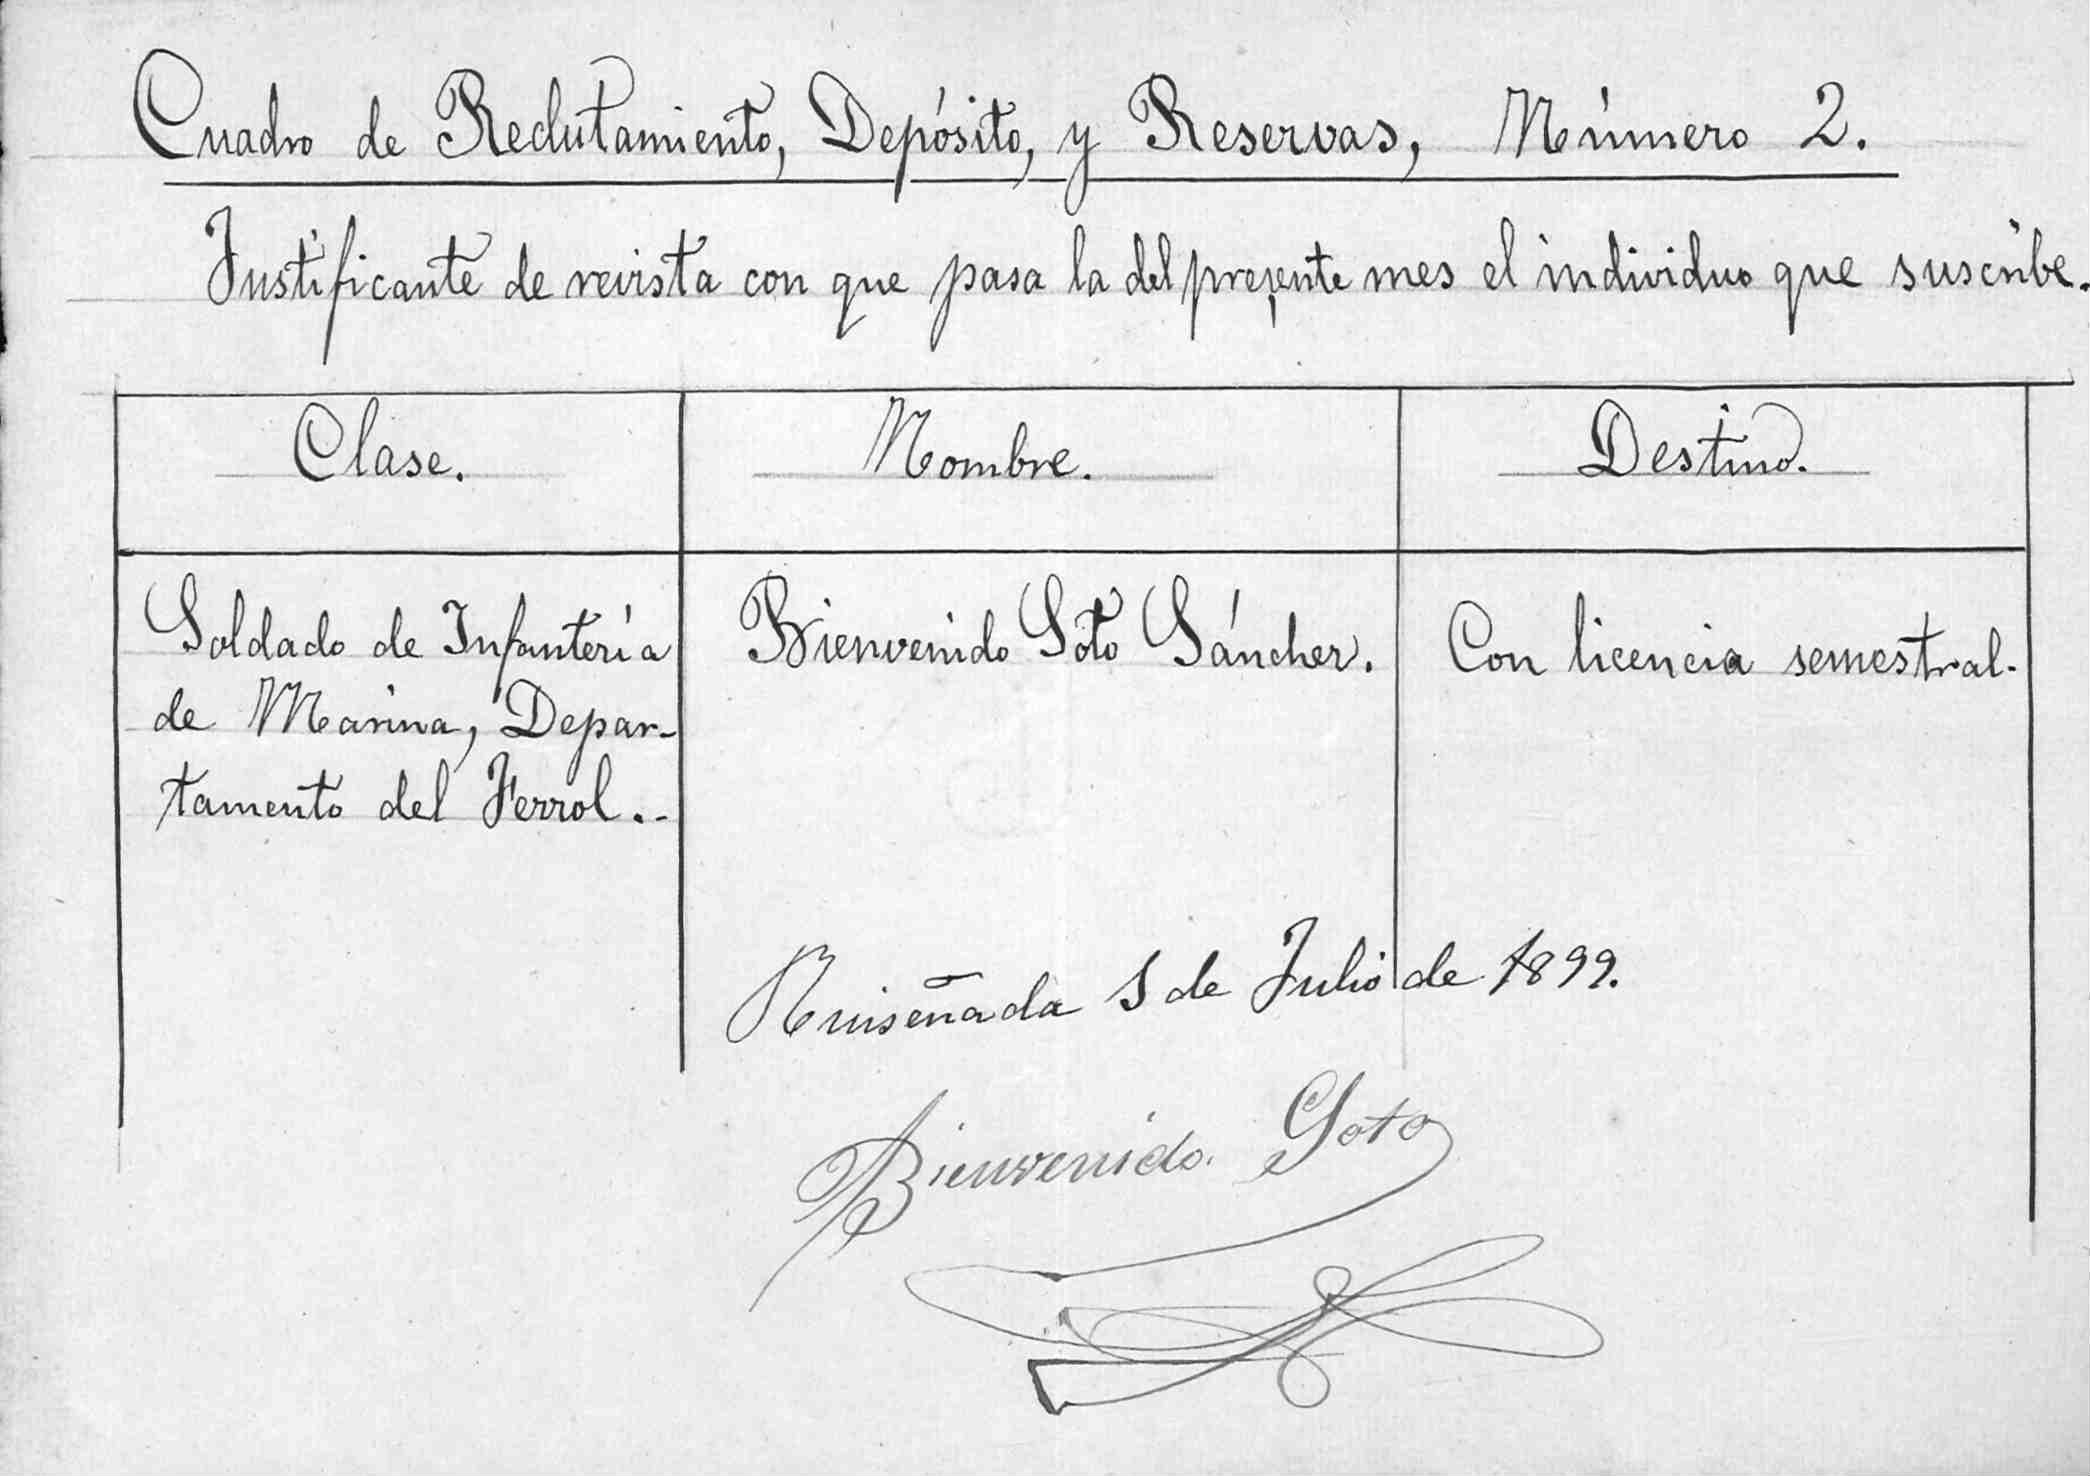 Cuadro de Reclutamiento, Depósito, y Reservas, Número 2.
Justificante de revista con que pasa la del presente mes el individuo que suscribe.
Clase.
Nombre.
Destino.
Soldado de Infantería
de Marina, Depar-
tamento del Ferrol.-
Bienvenido Soto Sánchez.
Con licencia semestral.
Ruiseñada 1 de Julio de 1899.
Bienvenido Soto